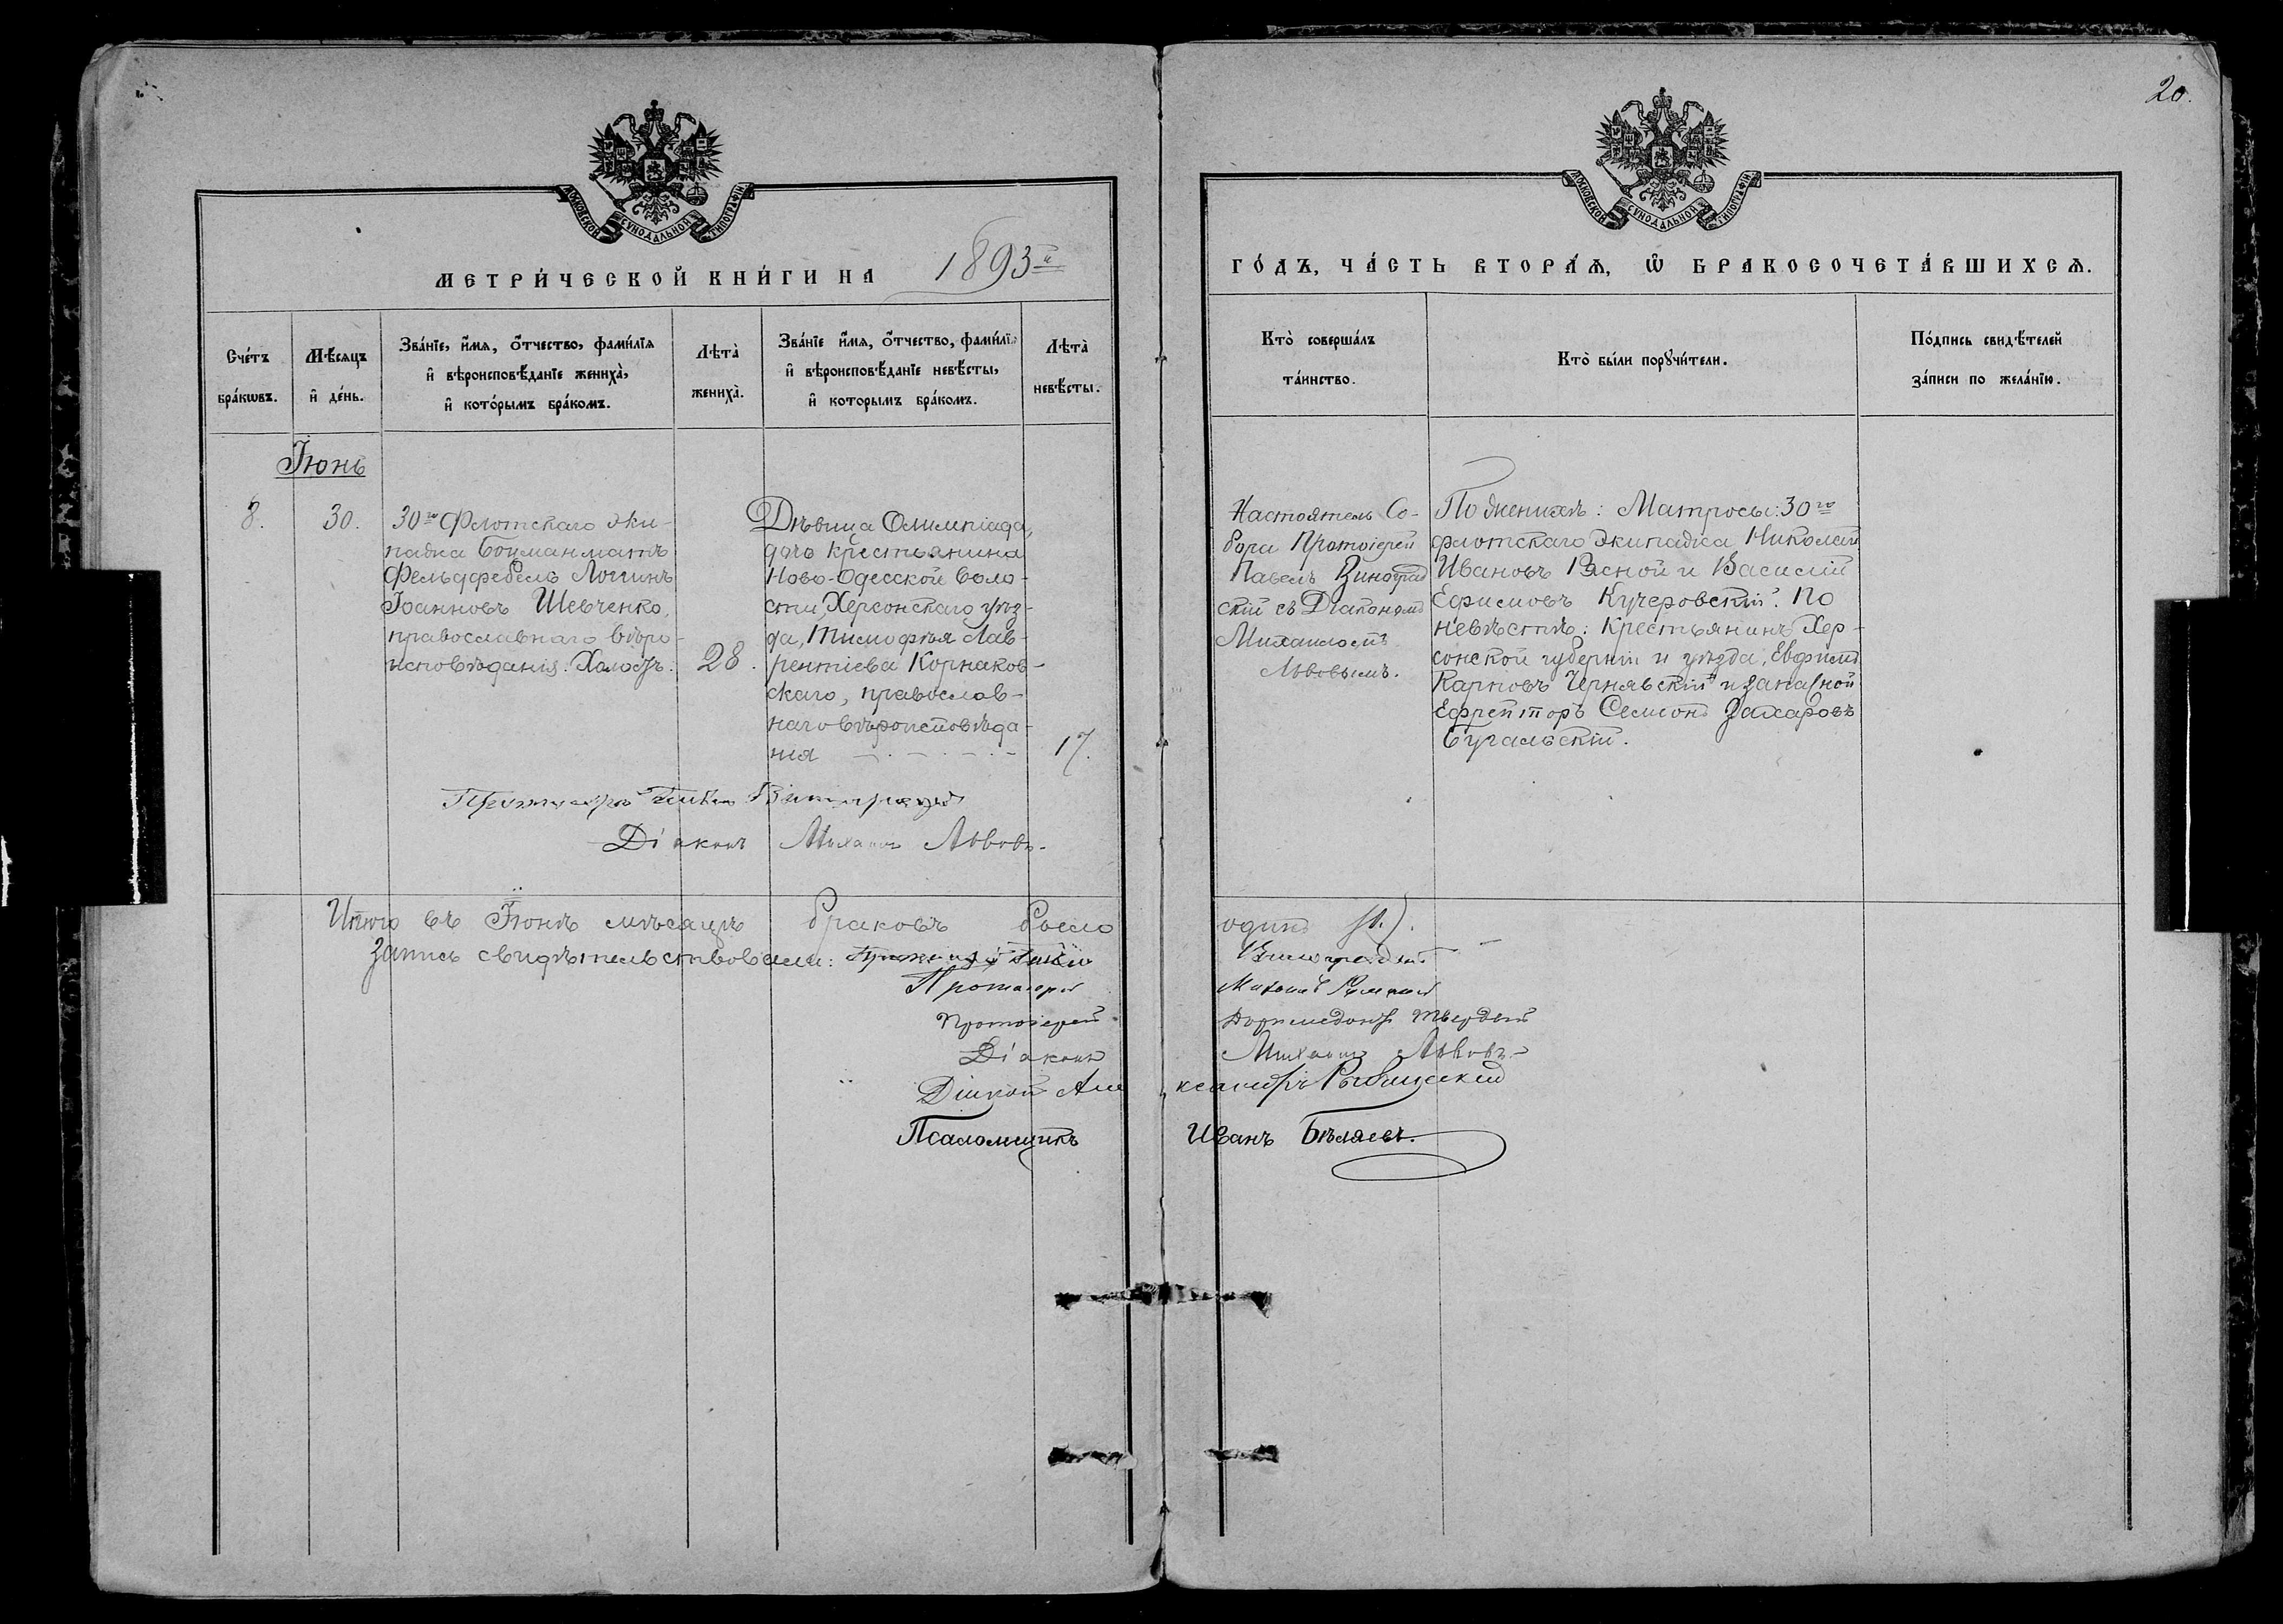 20.
МОСКОВСКОЙ СѴНОДАЛЬНОЙ ТИПОГРАФІИ
МОСКОВСКОЙ СѴНОДАЛЬНОЙ ТИПОГРАФІИ
МЕТРИ́ЧЕСКОЙ КНИ́ГИ НА 1893й
ГО́ДЪ, ЧА́СТЬ ВТОРА́Ѧ, Ѿ БРАКОСОЧЕТА́ВШИХСѦ.
Сче́тъ
бра́кѡвъ.
Мѣ́сяцъ
и҆ де́нь.
Зва́нїе, и҆́мя, о҆́тчество, фами́лїя
и҆ вѣроисповѣ́данїе жениха̀,
и҆ кото́рымъ бра́комъ.
Лѣта̀
жениха̀.
Зва́нїе и҆́мя, о҆́тчество, фами́лїя
и҆ вѣроисповѣ́данїе невѣ́сты,
и҆ которымъ бра́комъ.
Лѣта̀
невѣ́сты.
Кто̀ соверша́лъ
та́инство.
Кто̀ бы́ли порꙋчи́тели.
По́дпись свидѣ́телей
за́писи по жела́нїю.
Іюнь
8.
30.
30го Флотскаго Эки-
пажа Боцманматъ
Фельдфебель Логинъ
Іоанновъ Шевченко,
православнаго вѣро-
исповѣданія. Холостъ.
28.
Дѣвица Олимпіада,
дочь крестьянина
Ново-Одесской воло-
сти, Херсонскаго уѣз-
да, Тимофѣя Лав-
рентіева Корнаков-
скаго, православ-
наго вѣроисповѣда-
нія
17.
Настоятель Со-
бора Протоіерей
Павелъ Виноград
скій съ Діакономъ
Михаиломъ
Львовымъ.
По женихѣ: Матросы: 30го
флотскаго Экипажа Николай
Ивановъ Рясной и Василій
Ефимовъ Кучеровскій. По
невѣстѣ: Крестьянинъ Хер-
сонской губерніи и уѣзда, Евфимъ
Карповъ Чернявскій и запасной
Ефрейторъ Семеонъ Захаровъ
Бугальскій.
Протоіерей Павелъ Виноградскій
Діаконъ Михаилъ Львовъ.
Итого въ Іюнѣ мѣсяцѣ браковъ было одинъ (1.).
Запись свидѣтельствовали: Протоіерей Павелъ Виноградскій
Протоіерей Михаилъ
Протоіерей Доримедонтъ Твердый
Діаконъ Михаилъ Львовъ.
Діаконъ Александръ Рыбицкій
Псаломщикъ Иванъ Бѣляевъ.